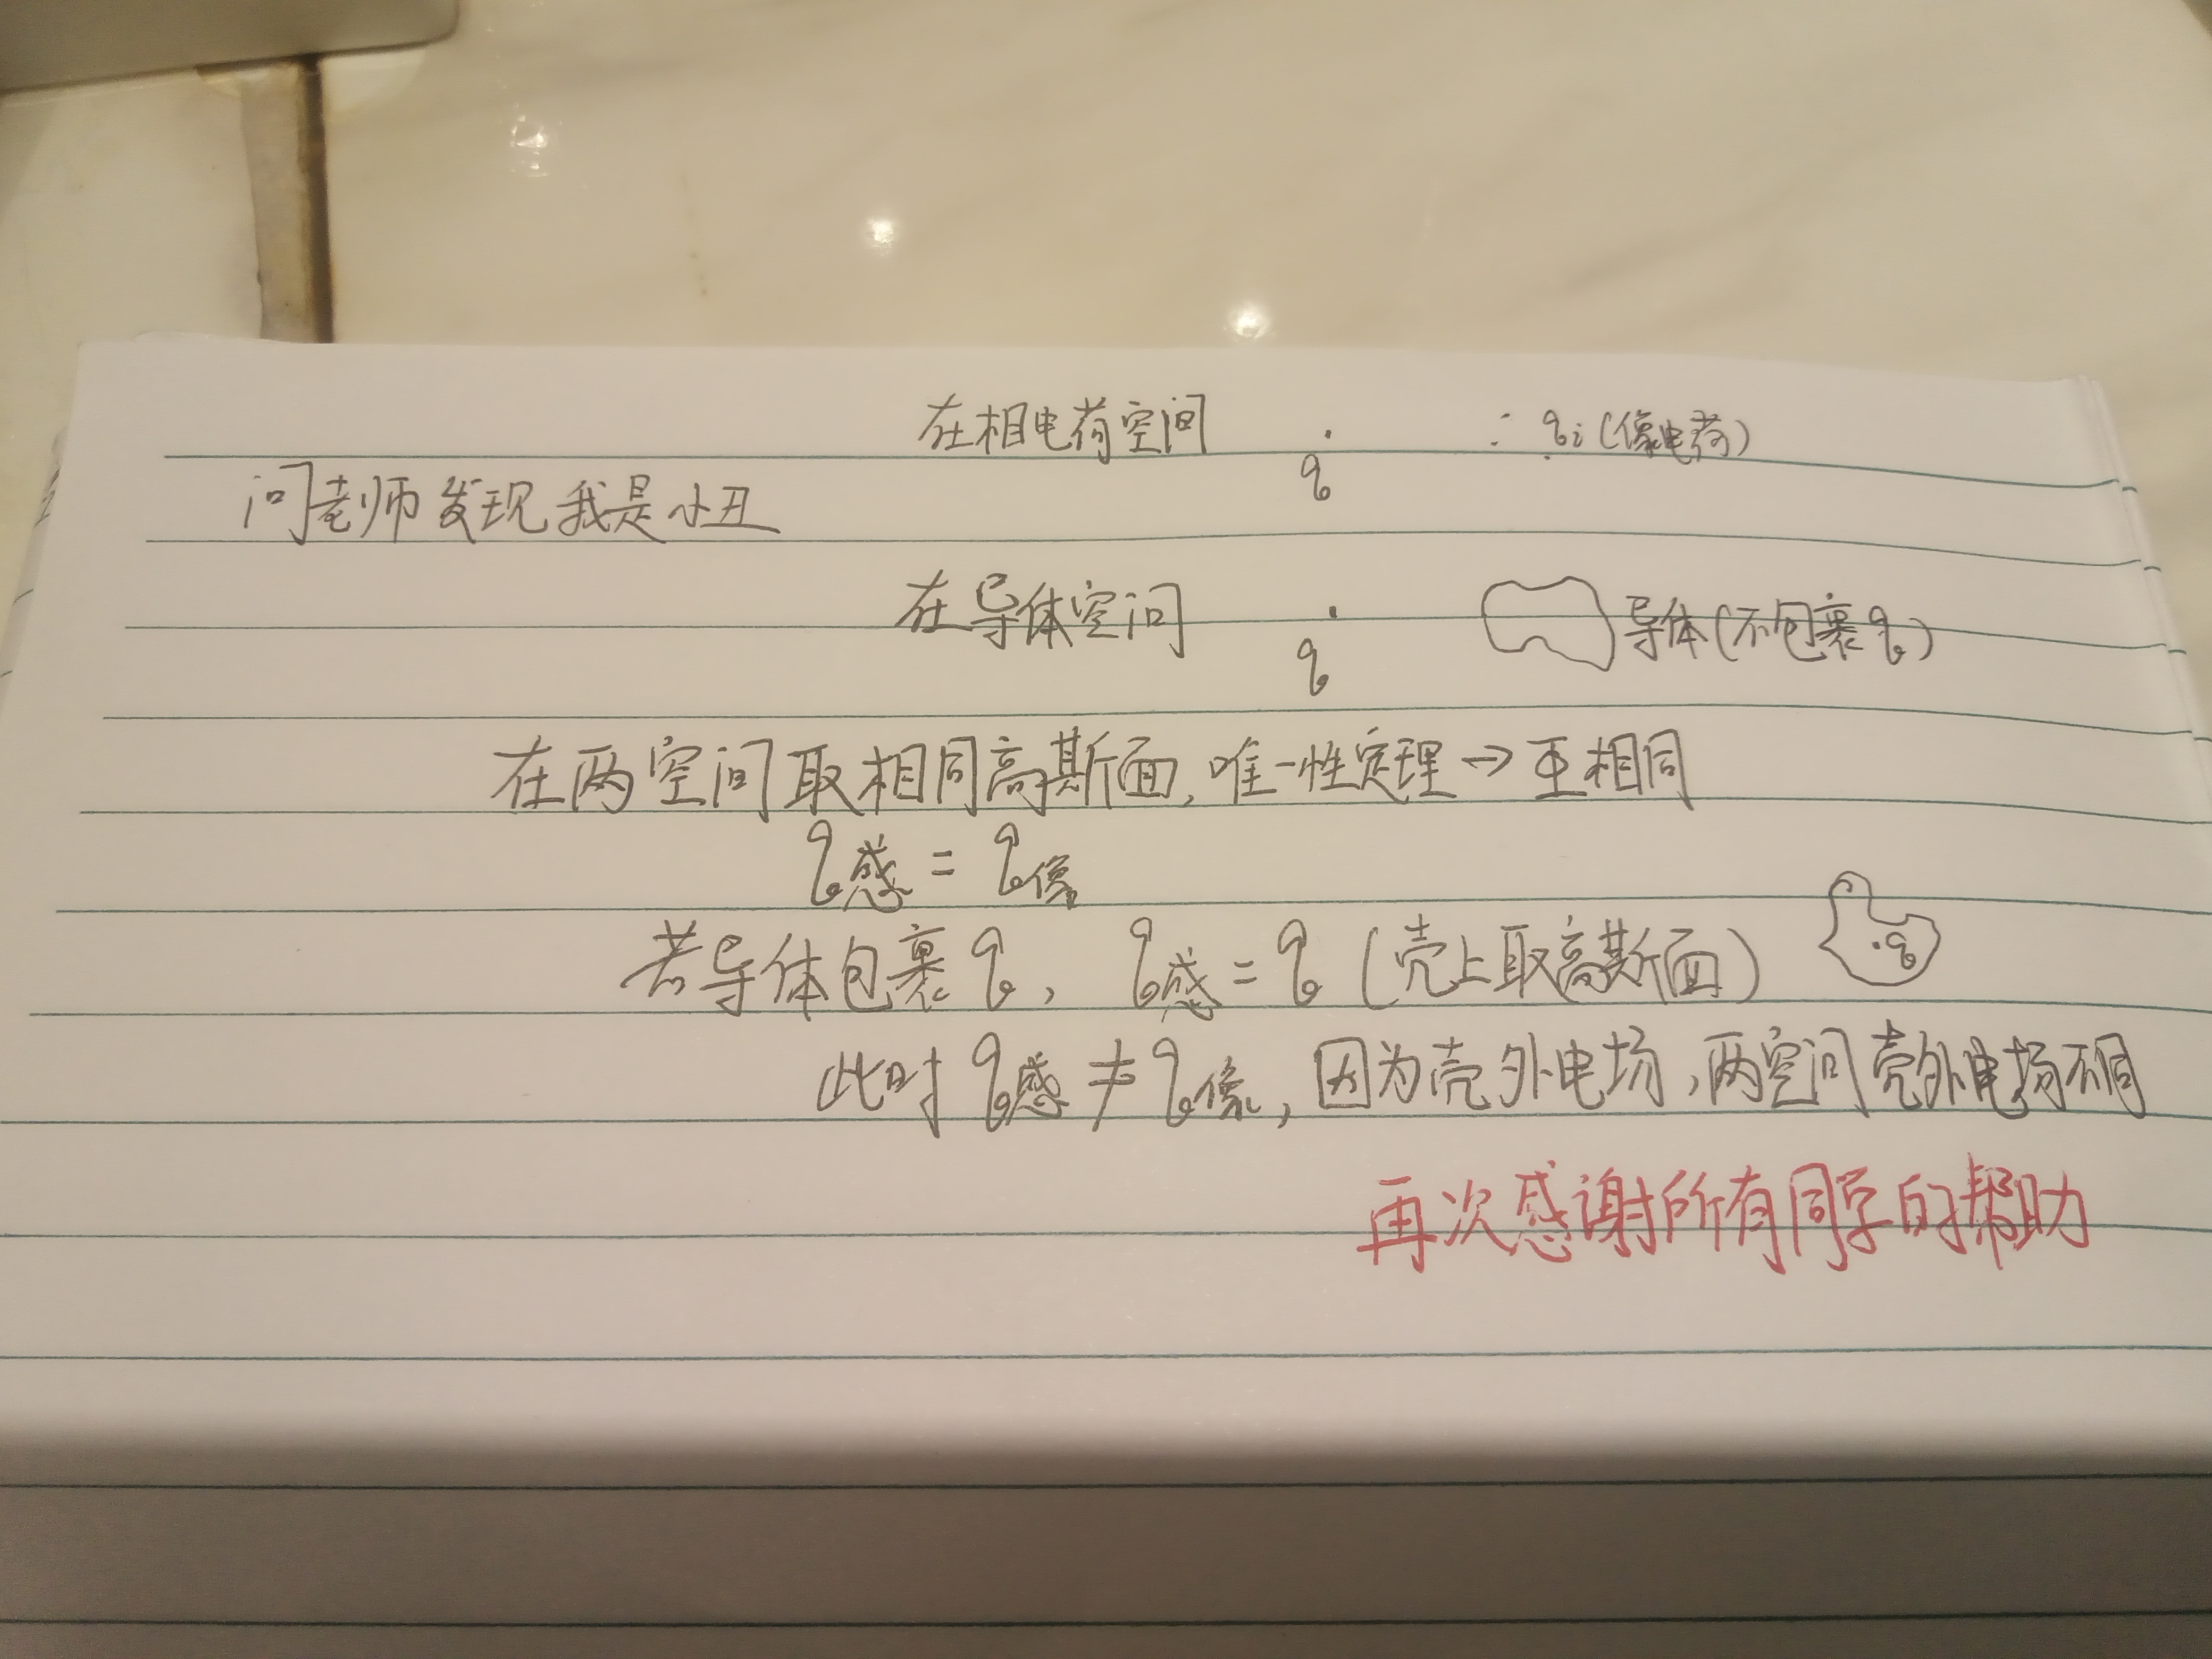 在相电荷空间 q qi(像电荷)
问老师发现我是小丑
在导体空间 q 导体(不包裹q)
在两空间取相同高斯面,唯一性定理→E相同
q感=q像
若导体包裹q, q感=q(壳上取高斯面) q
此时q感≠q像,因为壳外电场,两空间壳外电场不同
再次感谢所有同学的帮助